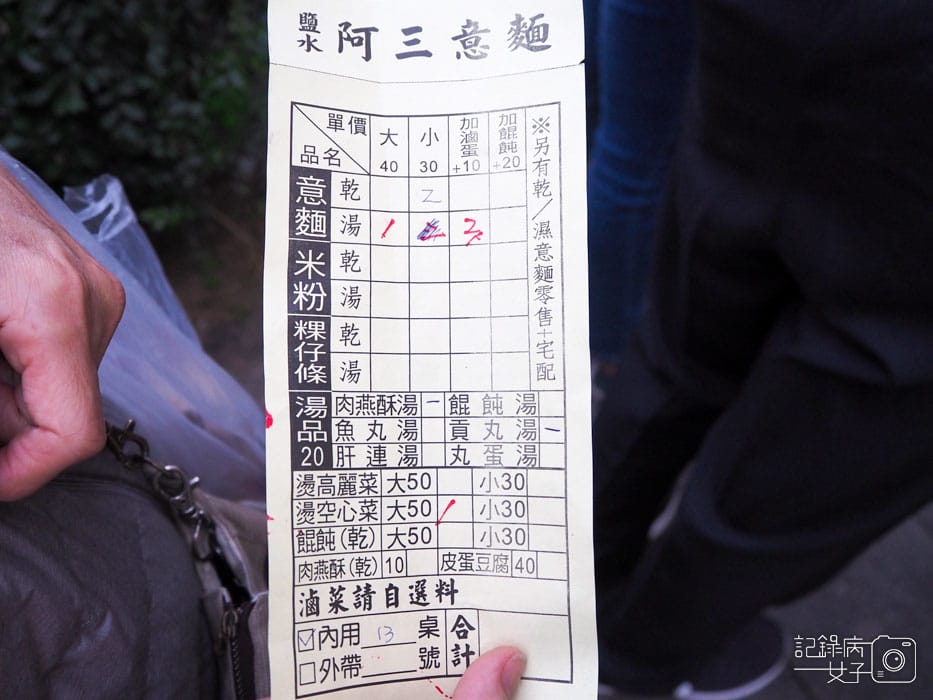 鹽水 阿三意麵
單價 大 小 加滷蛋 加餛飩
品名 40 30 +10 +20
意麵 乾 2
湯 1
米粉 乾
湯
粿仔條 乾
湯
※另有乾/濕意麵零售+宅配
湯品20 肉燕酥湯 一 餛飩湯
魚丸湯 貢丸湯 一
肝連湯 丸蛋湯
燙高麗菜 大50 小30
燙空心菜 大50 / 小30
餛飩(乾) 大50 小30
肉燕酥(乾) 10 皮蛋豆腐 40
滷菜請自選料
☑內用 13 桌號 合計
□外帶
記錄病女子